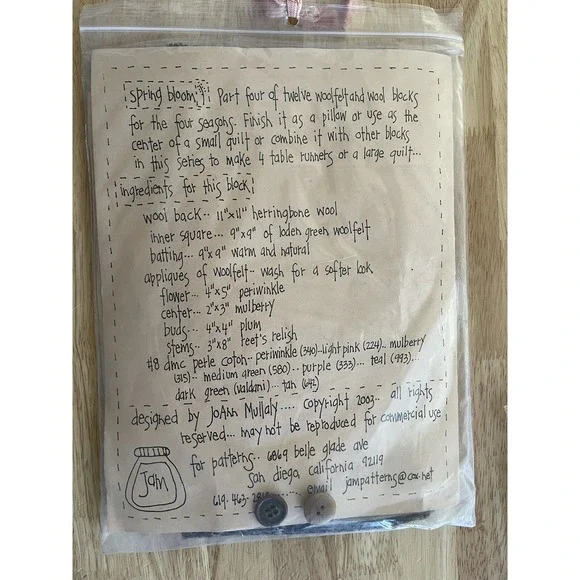 spring bloom Part four of twelve woolfelt and wool blocks
for the four seasons. Finish it as a pillow or use as the
center of a small quilt or combine it with other blocks
in this series to make 4 table runners or a large quilt...
ingredients for this block
wool back.. 11"x11" herringbone wool
inner square... 9"x9" of loden green woolfelt
batting... 9"x9" warm and natural
appliques of woolfelt.. wash for a softer look
flower... 4"x5" periwinkle
center... 2"x3" mulberry
buds... 4"x4" plum
stems... 3"x8" reet's relish
#8 dmc perle coton.. periwinkle (340).. light pink (224).. mulberry
(315).. medium green (580).. purple (333)... teal (993)...
dark green (valdani)... tan (642)
designed by JoAnn Mullaly.... copyright 2003... all rights
reserved... may not be reproduced for commercial use
for patterns.. 6869 belle glade ave
san diego, california 92119
619.463- email jampatterns@cox.net
jam